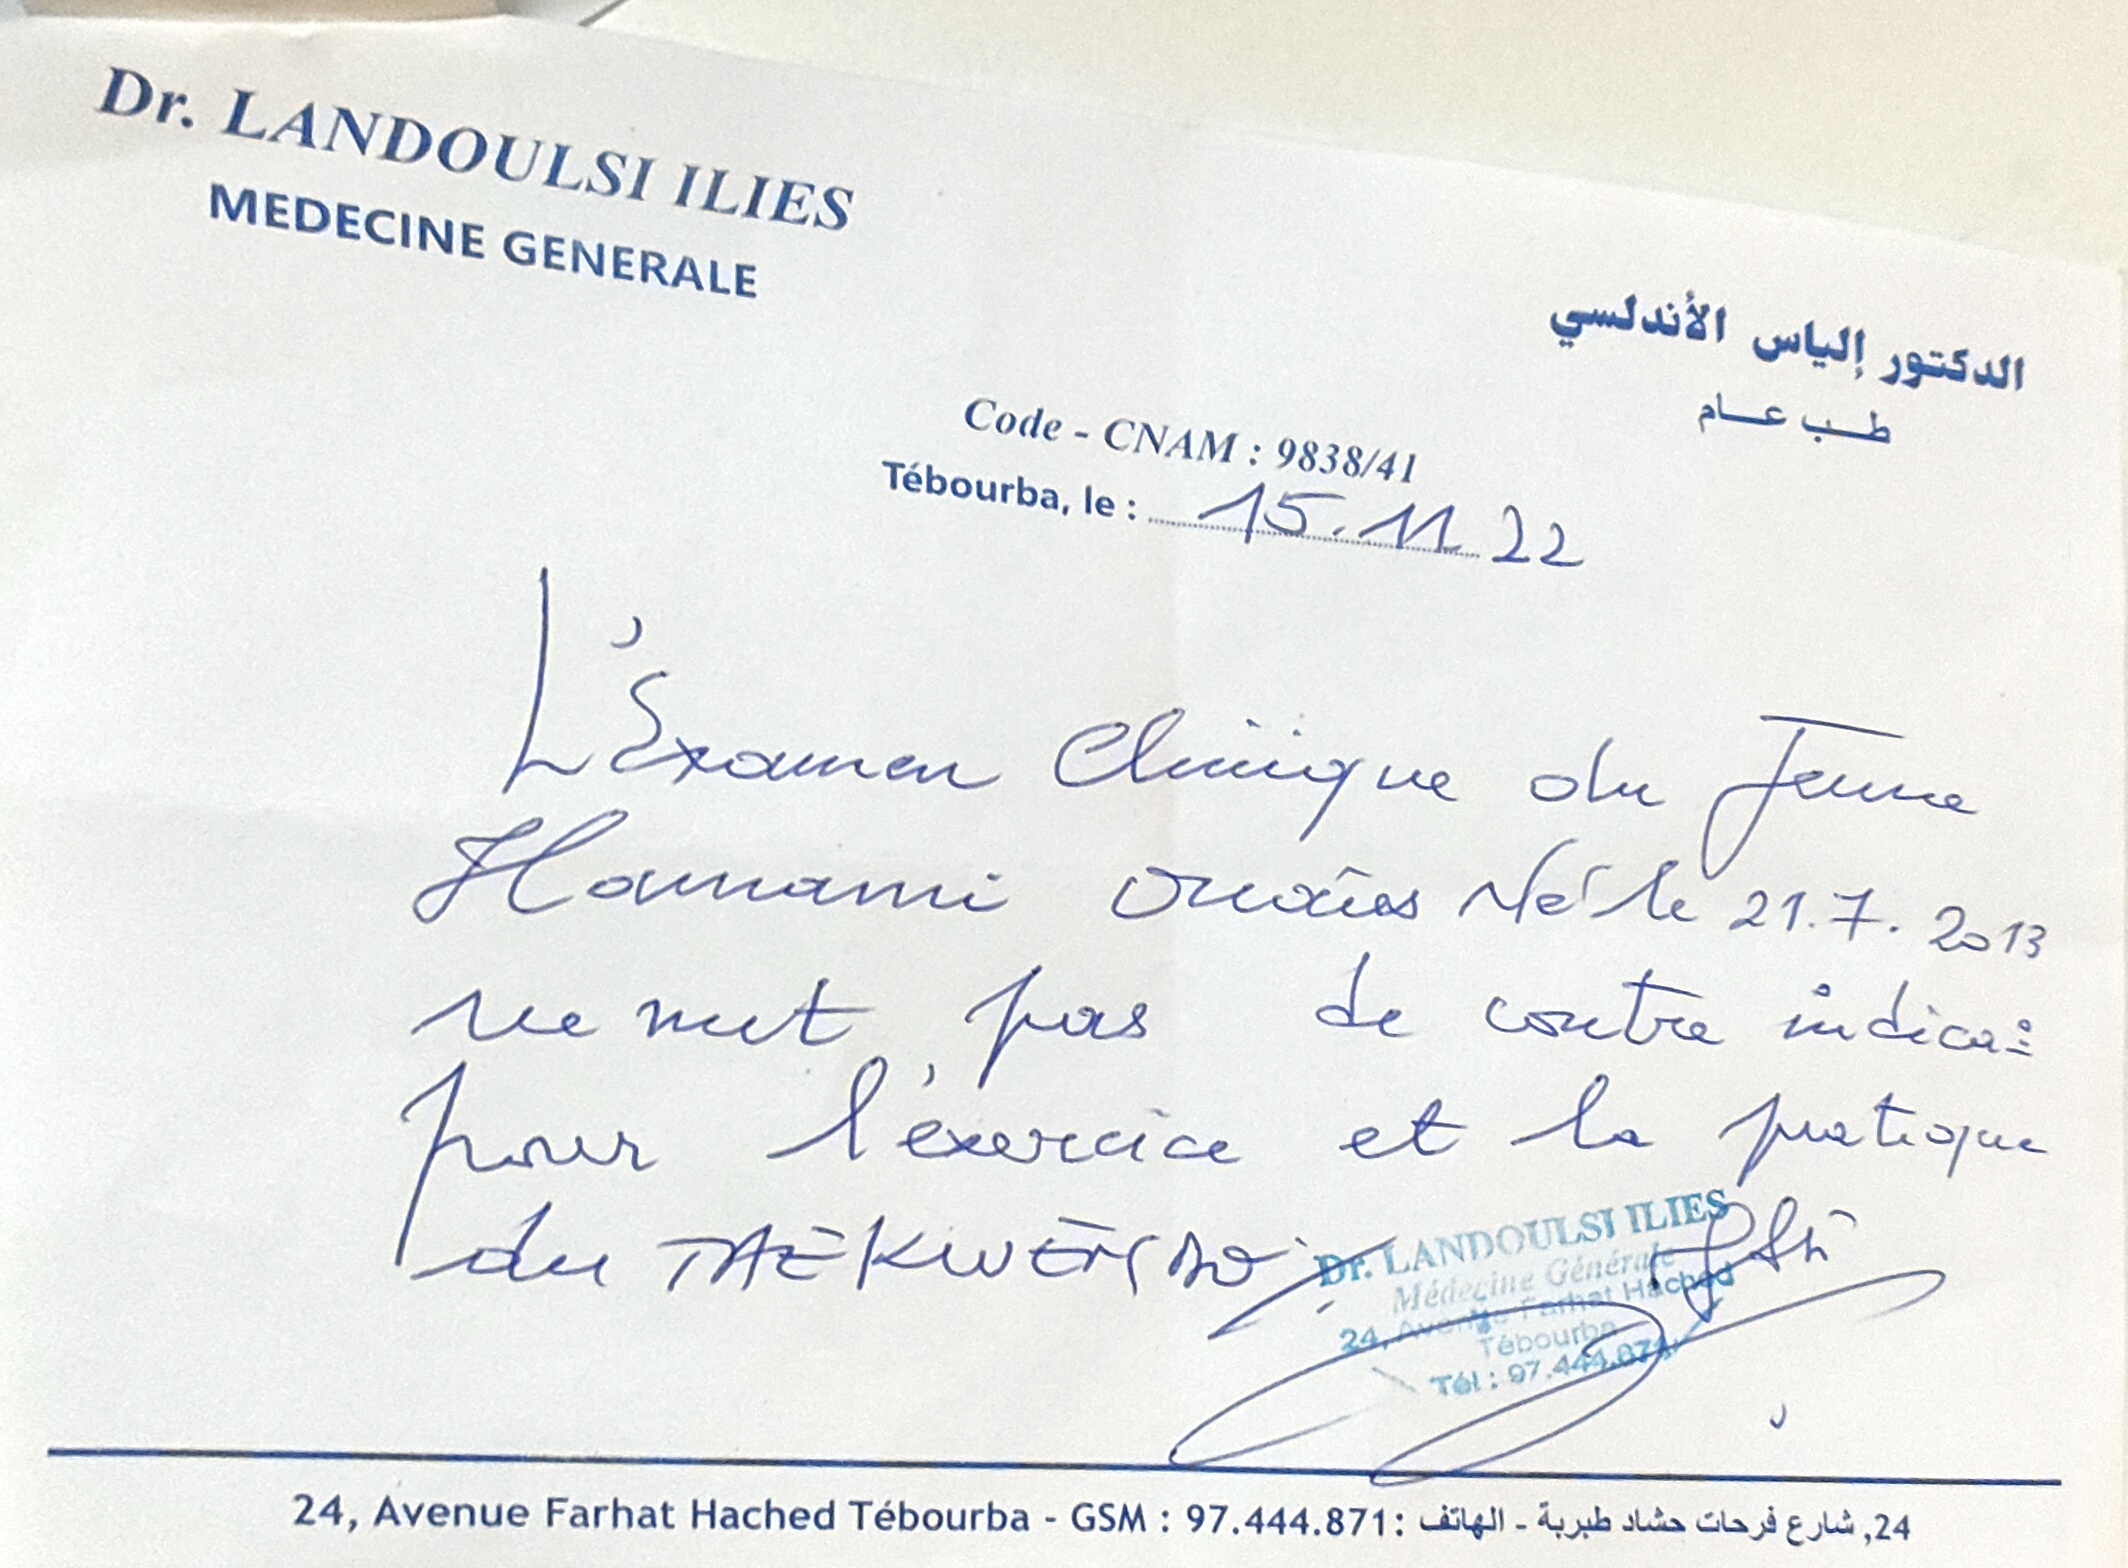 Dr. LANDOULSI ILIES
MEDECINE GENERALE
الدكتور إلياس الأندلسي
طب عام
Code - CNAM : 9838/41
Tébourba, le : 15.11 22
L'Examen Clinique du Jeune
Hammami Ouaies Né le 21.7.2013
ne met pas de contre indica:
pour l'exercice et la pratique
du TAEKWENDO
Dr. LANDOULSI ILIES
Médecine Générale
24, Avenue Farhat Hached
Tébourba
Tél : 97.444.871
24, Avenue Farhat Hached Tébourba - GSM : 97.444.871 : 24, شارع فرحات حشاد طبربة - الهاتف